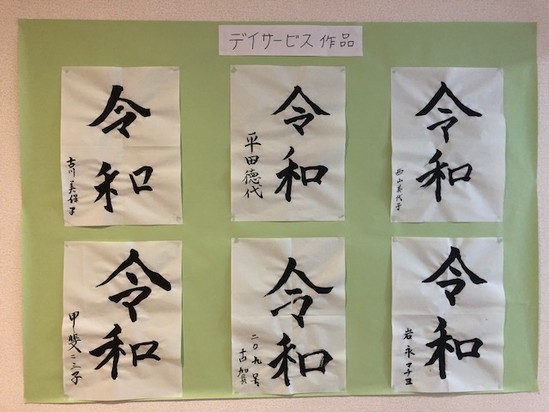 デイサービス作品
令和
古川美保子
令和
平田徳代
令和
西山美代子
令和
甲斐二三子
令和
古賀
令和
岩永マチヨ